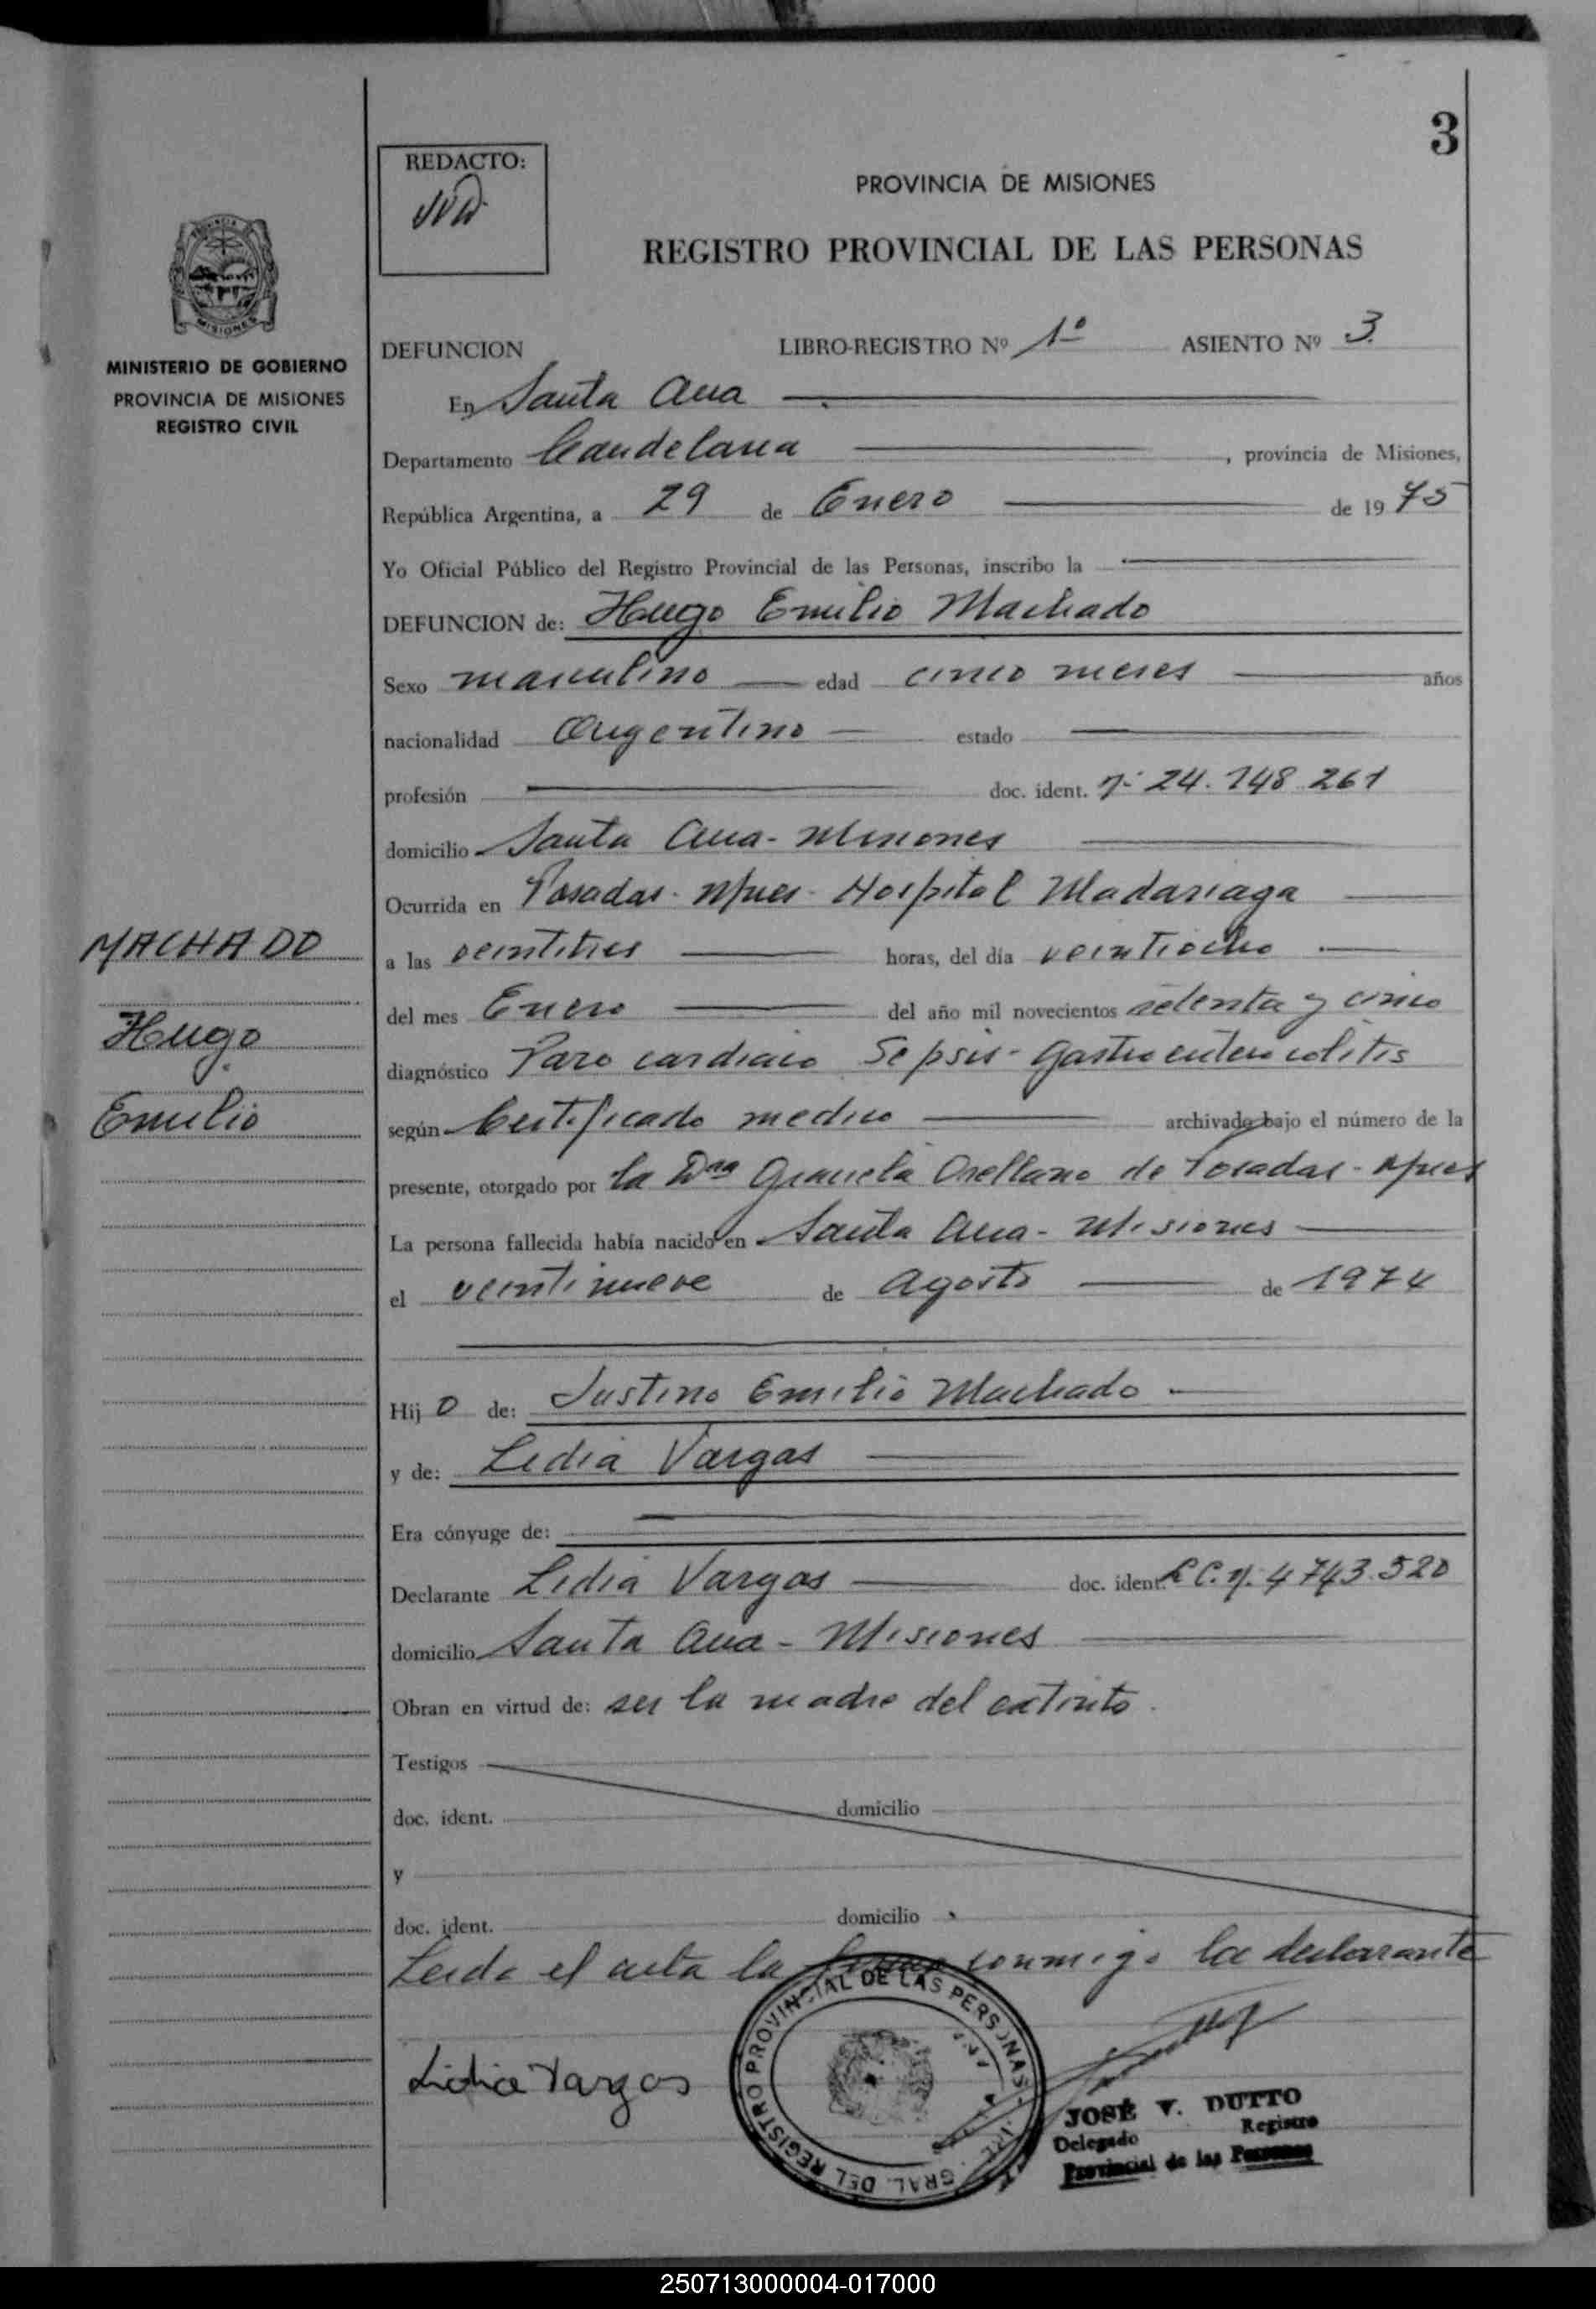 3
REDACTO:
PROVINCIA DE MISIONES
REGISTRO PROVINCIAL DE LAS PERSONAS
MISIONES
MINISTERIO DE GOBIERNO
PROVINCIA DE MISIONES
REGISTRO CIVIL
DEFUNCION LIBRO-REGISTRO Nº 1º ASIENTO Nº 3
En Santa Ana
Departamento Candelaria, provincia de Misiones,
República Argentina, a 29 de Enero de 1975
Yo Oficial Público del Registro Provincial de las Personas, inscribo la
DEFUNCION de: Hugo Emilio Machado
Sexo masculino edad cinco meses años
nacionalidad Argentino estado
profesión doc. ident. nº 24.148.261
domicilio Santa Ana - Misiones
Ocurrida en Posadas - Mnes - Hospital Madariaga
MACHADO
Hugo
Emilio
a las veintitres horas, del día veintiocho
del mes Enero del año mil novecientos setenta y cinco
diagnóstico Paro cardiaco Sepsis - gastroenterocolitis
según Certificado medico archivado bajo el número de la
presente, otorgado por la Dra Graciela Orellano de Posadas - Mnes
La persona fallecida había nacido en Santa Ana - Misiones
el veintinueve de Agosto de 1974
Hijo de: Justino Emilio Machado
y de: Lidia Vargas
Era cónyuge de:
Declarante Lidia Vargas doc. ident. L.C. nº 4.743.520
domicilio Santa Ana - Misiones
Obran en virtud de: ser la madre del extinto.
Testigos
doc. ident. domicilio
y
doc. ident. domicilio
Leida el acta la firma conmigo la declarante
Lidia Vargas
GRAL. DEL REGISTRO PROVINCIAL DE LAS PERSONAS
JOSÉ V. DUTTO
Delegado Registro
Provincial de las Personas
250713000004-017000